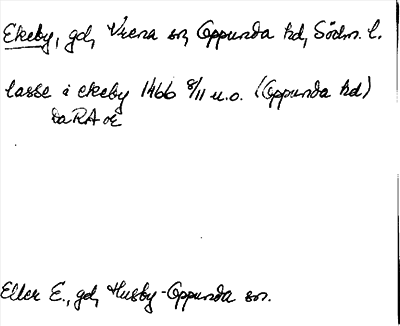 Ekeby, gd, Vrena sn, Oppunda hd, Södm. l.
lasse i ekeby 1466 8/11 u.o. (Oppunda hd)
DaRA or
Eller E., gd, Husby-Oppunda sn.